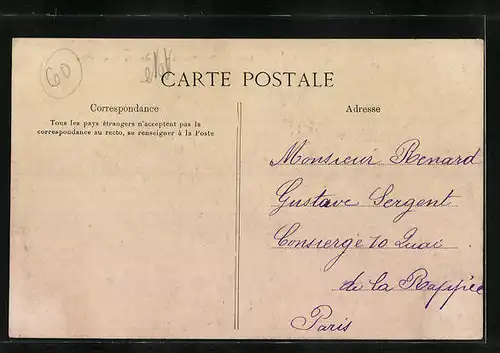 60
CARTE POSTALE
Correspondance
Tous les pays étrangers n'acceptent pas la
correspondance au recto, se renseigner à la Poste
Adresse
Monsieur Renard
Gustave Sergent
Consierge 10 Quai
de la Rappée
Paris